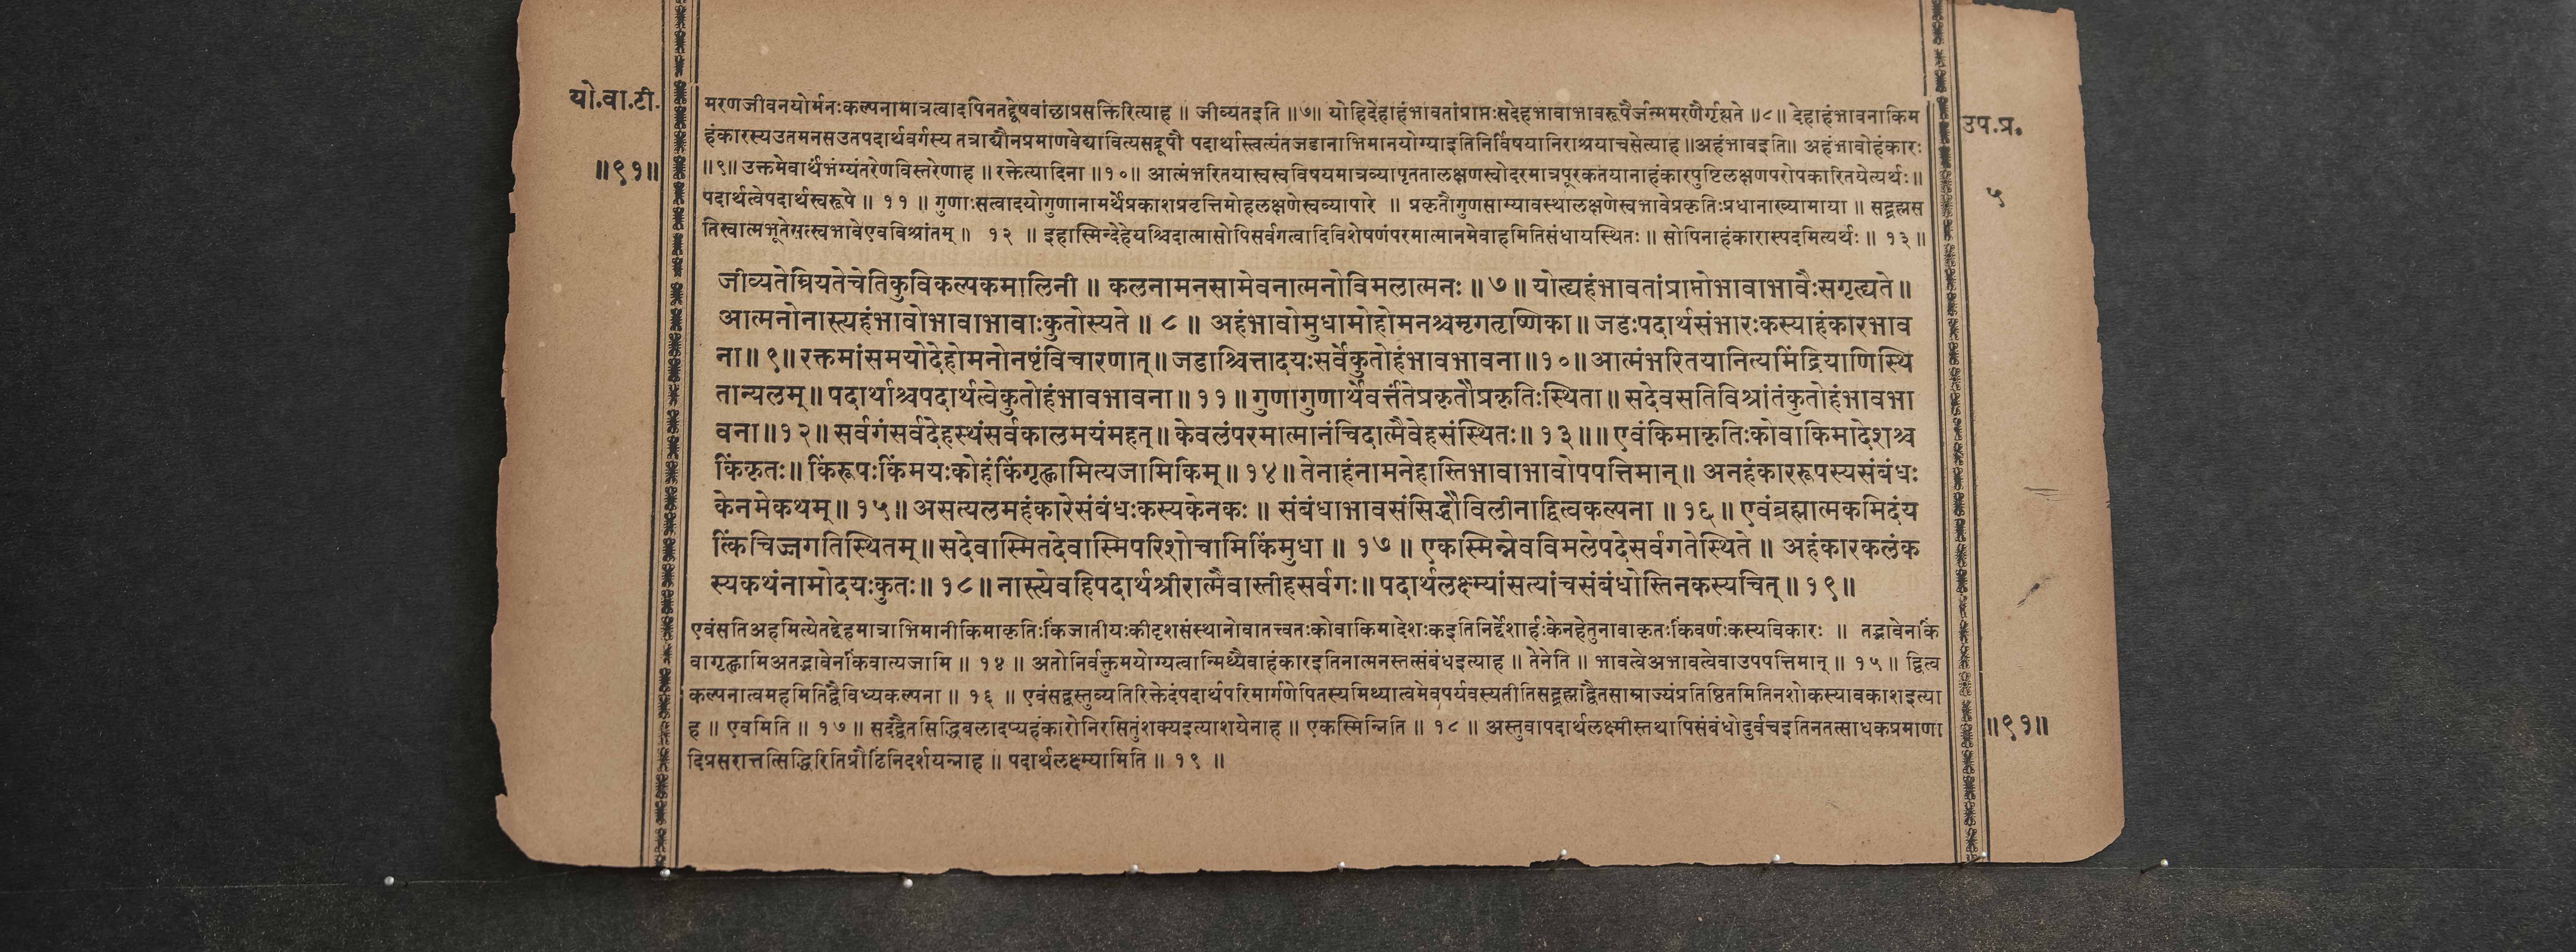 यो.वा.टी.
॥९१॥
मरणजीवनयोर्मनःकल्पनामात्रत्वादपिनतद्द्वेषवांछाप्रसक्तिरित्याह ॥ जीव्यतइति ॥७॥ योहिदेहाहंभावतांप्राप्तःसदेहभावाभावरूपैर्जन्ममरणैर्गृह्यते ॥८॥ देहाहंभावनाकिम
हंकारस्यउतमनसउतपदार्थवर्गस्य तत्राद्यौनप्रमाणवेद्यावित्यसद्रूपौ पदार्थास्त्वत्यंतजडानाभिमानयोग्याइतिनिर्विषयानिराश्रयाचसेत्याह ॥अहंभावइति॥ अहंभावोहंकारः
॥९॥ उक्तमेवार्थंभंग्यंतरेणविस्तरेणाह ॥ रक्तेत्यादिना ॥१०॥ आत्मंभरितयास्वस्वविषयमात्रव्यापृततालक्षणस्वोदरमात्रपूरकतयानाहंकारपुष्टिलक्षणपरोपकारितयेत्यर्थः॥
पदार्थत्वेपदार्थस्वरूपे ॥ ११ ॥ गुणाःसत्वादयोगुणानामर्थेप्रकाशप्रवृत्तिमोहलक्षणेस्वव्यापारे ॥ प्रकृतौगुणसाम्यावस्थालक्षणेस्वभावेप्रकृतिःप्रधानाख्यामाया ॥ सद्ब्रह्मस
तिस्वात्मभूतेसत्स्वभावेएवविश्रांतम् ॥ १२ ॥ इहास्मिन्देहेयश्चिदात्मासोपिसर्वगत्वादिविशेषणंपरमात्मानमेवाहमितिसंधायस्थितः॥ सोपिनाहंकारास्पदमित्यर्थः॥ १३॥
जीव्यतेम्रियतेचेतिकुविकल्पकमालिनी ॥ कलनामनसामेवनात्मनोविमलात्मनः ॥ ७ ॥ योह्यहंभावतांप्राप्तोभावाभावैःसगृह्यते॥
आत्मनोनास्त्यहंभावोभावाभावाःकुतोस्यते ॥ ८ ॥ अहंभावोमुधामोहोमनश्चमृगतृष्णिका॥ जडःपदार्थसंभारःकस्याहंकारभाव
ना॥९॥ रक्तमांसमयोदेहोमनोनष्टंविचारणात्॥ जडाश्चित्तादयःसर्वेकुतोहंभावभावना॥१०॥ आत्मंभरितयानित्यमिंद्रियाणिस्थि
तान्यलम्॥ पदार्थाश्चपदार्थत्वेकुतोहंभावभावना॥ ११॥ गुणागुणार्थेवर्त्तंतेप्रकृतौप्रकृतिःस्थिता॥ सदेवसतिविश्रांतंकुतोहंभावभा
वना॥१२॥ सर्वगंसर्वदेहस्थंसर्वकालमयंमहत्॥ केवलंपरमात्मानंचिदात्मैवेहसंस्थितः॥ १३॥॥ एवंकिमाकृतिःकोवाकिमादेशश्च
किंकृतः॥ किंरूपःकिंमयःकोहंकिंगृह्णामित्यजामिकिम्॥ १४॥ तेनाहंनामनेहास्तिभावाभावोपपत्तिमान्॥ अनहंकाररूपस्यसंबंधः
केनमेकथम्॥ १५॥ असत्यलमहंकारेसंबंधःकस्यकेनकः ॥ संबंधाभावसंसिद्धौविलीनाद्वित्वकल्पना ॥ १६॥ एवंब्रह्मात्मकमिदंय
त्किंचिज्जगतिस्थितम्॥ सदेवास्मितदेवास्मिपरिशोचामिकिंमुधा ॥ १७॥ एकस्मिन्नेवविमलेपदेसर्वगतेस्थिते ॥ अहंकारकलंक
स्यकथंनामोदयःकुतः॥ १८॥ नास्त्येवहिपदार्थश्रीरात्मैवास्तीहसर्वगः॥ पदार्थलक्ष्म्यांसत्यांचसंबंधोस्तिनकस्यचित्॥ १९॥
एवंसतिअहमित्येतद्देहमात्राभिमानीकिमाकृतिःकिंजातीयःकीदृशसंस्थानोवातत्त्वतःकोवाकिमादेशःकइतिनिर्द्देशार्हःकेनहेतुनावाकृतःकिंवर्णःकस्यविकारः ॥ तद्भावेनकिं
वागृह्णामिअतद्भावेनकिंवात्यजामि ॥ १४ ॥ अतोनिर्वक्तुमयोग्यत्वान्मिथ्यैवाहंकारइतिनात्मनस्तत्संबंधइत्याह ॥ तेनेति ॥ भावत्वेअभावत्वेवाउपपत्तिमान् ॥ १५ ॥ द्वित्व
कल्पनात्वमहमितिद्वैविध्यकल्पना ॥ १६ ॥ एवंसद्वस्तुव्यतिरिक्तेदंपदार्थपरिमार्गणेपितस्यमिथ्यात्वमेवपर्यवस्यतीतिसद्ब्रह्माद्वैतसाम्राज्यंप्रतिष्ठितमितिनशोकस्यावकाशइत्या
ह ॥ एवमिति ॥ १७ ॥ सदद्वैतसिद्धिबलादप्यहंकारोनिरसितुंशक्यइत्याशयेनाह ॥ एकस्मिन्निति ॥ १८ ॥ अस्तुवापदार्थलक्ष्मीस्तथापिसंबंधोदुर्वचइतिनतत्साधकप्रमाणा
दिप्रसरात्तत्सिद्धिरितिप्रौढिंनिदर्शयन्नाह ॥ पदार्थलक्ष्म्यामिति ॥ १९ ॥
उप.प्र.
५
॥९१॥